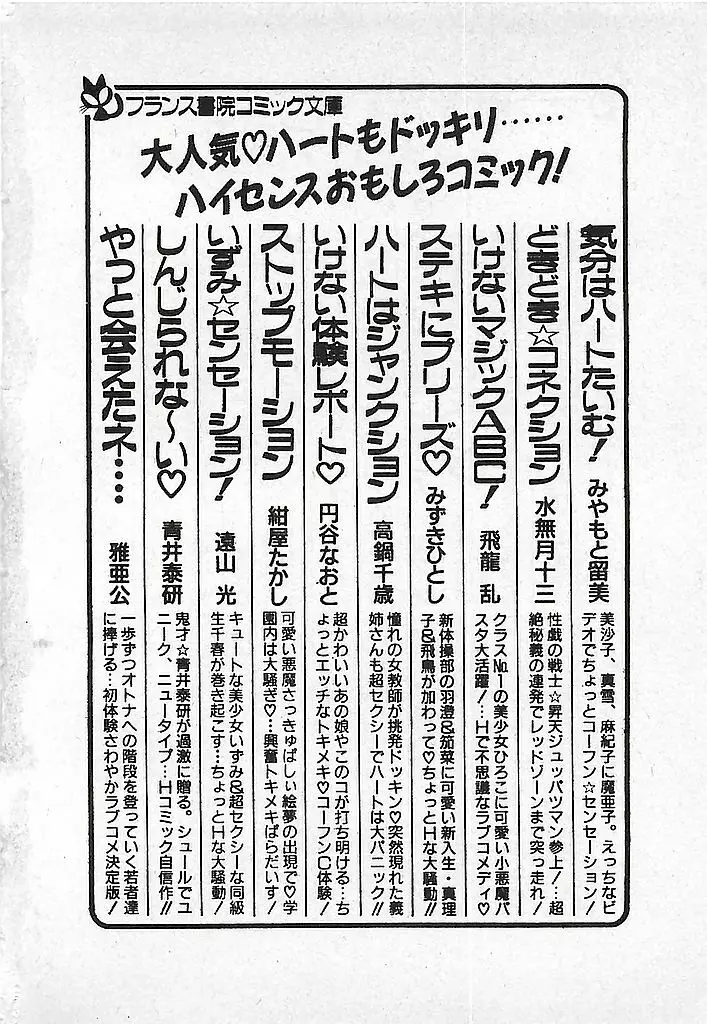 フランス書院コミック文庫
大人気♡ハートもドッキリ……
ハイセンスおもしろコミック!
気分はハートたいむ! みやもと留美
美沙子、真雪、麻紀子に魔亜子。えっちなビ
デオでちょっとコーフン☆センセーション!
どきどき☆コネクション 水無月十三
性戯の戦士☆昇天ジュッパツマン参上!…超
絶秘義の連発でレッドゾーンまで突っ走れ!
いけないマジックABC! 飛龍 乱
クラス№1の美少女ひろこに可愛い小悪魔パ
スタ大活躍!…Hで不思議なラブコメディ♡
ステキにプリーズ♡ みずきひとし
新体操部の羽澄&茄菜に可愛い新入生・真理
子&飛鳥が加わって♡ちょっとHな大騒動!!
ハートはジャンクション 高鍋千歳
憧れの女教師が挑発ドッキン♡突然現れた義
姉さんも超セクシーでハートは大パニック!!
いけない体験レポート♡ 円谷なおと
超かわいいあの娘やこのコが打ち明ける…ち
ょっとエッチなトキメキ♡コーフンC体験!
ストップモーション 紺屋たかし
可愛い悪魔さっきゅばしぃ絵夢の出現で♡学
園内は大騒ぎ♡…興奮トキメキぱらだいす!
いずみ☆センセーション! 遠山 光
キュートな美少女いずみ&超セクシーな同級
生千春が巻き起こす…ちょっとHな大騒動!
しんじられな〜い♡ 青井泰研
鬼才☆青井泰研が過激に贈る。シュールでユ
ニーク、ニュータイプ…Hコミック自信作!!
やっと会えたネ… 雅亜公
一歩ずつオトナへの階段を登っていく若者達
に捧げる…初体験さわやかラブコメ決定版!